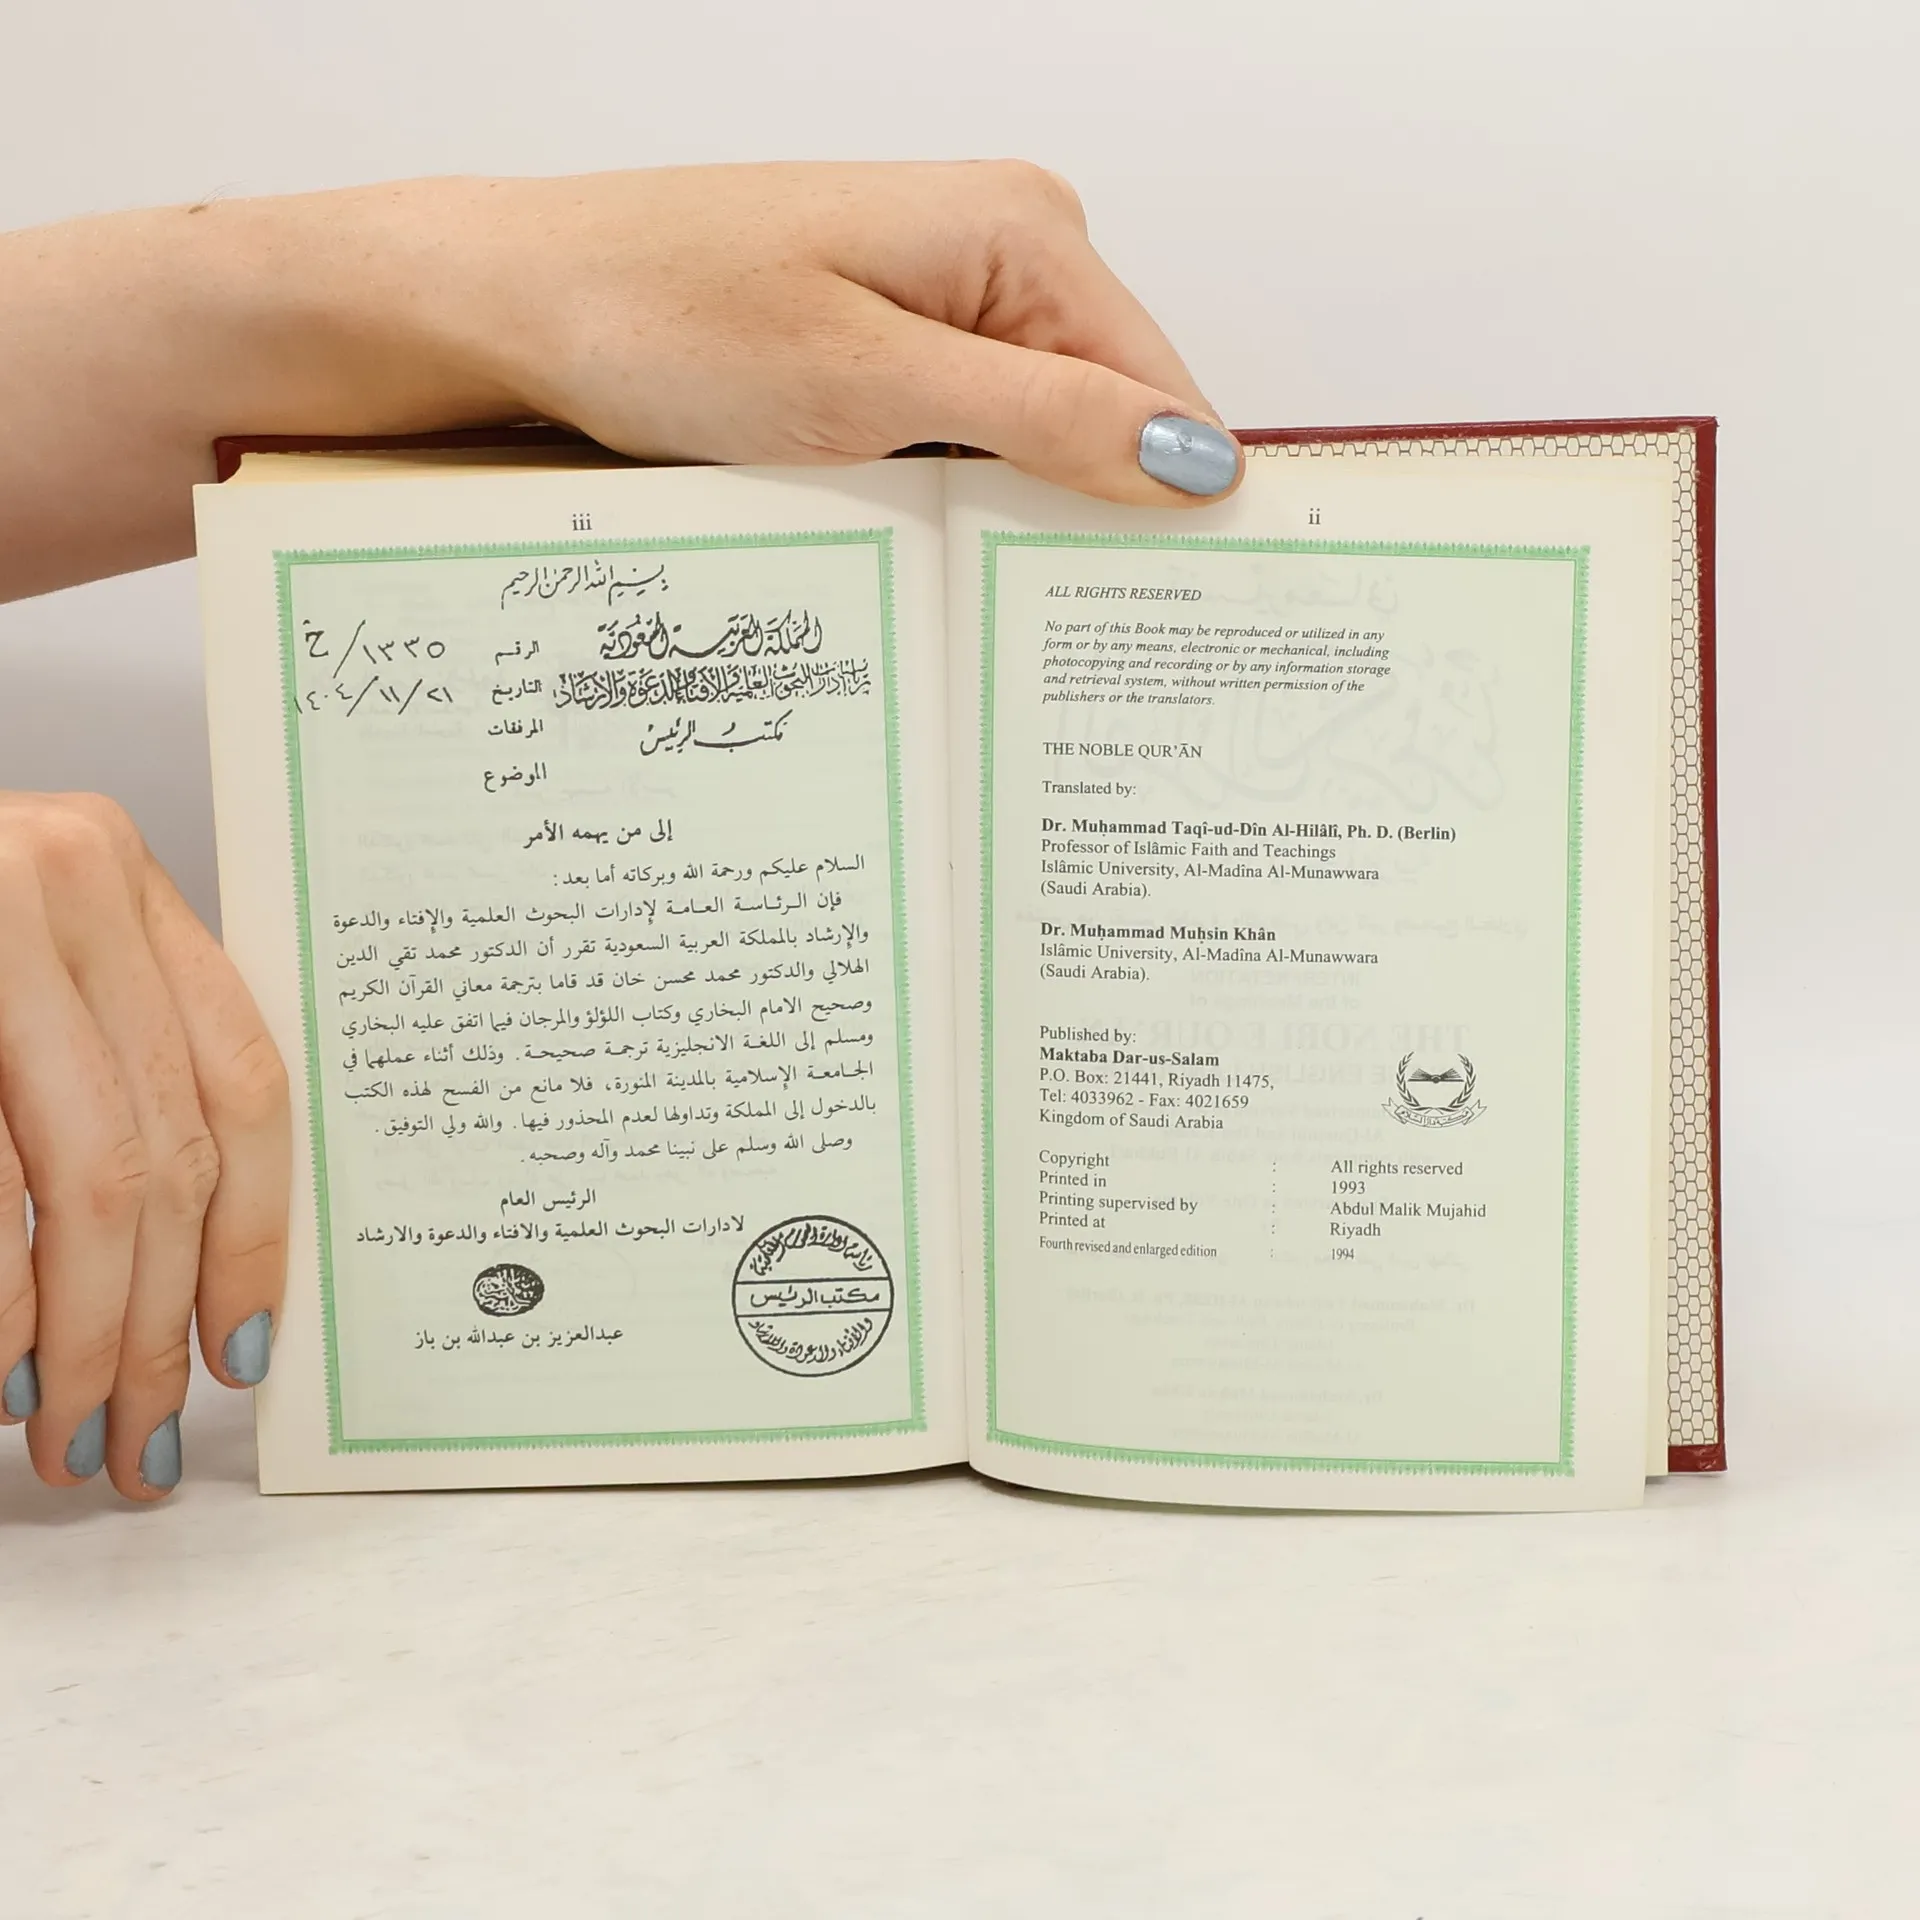 ii
ALL RIGHTS RESERVED
No part of this Book may be reproduced or utilized in any
form or by any means, electronic or mechanical, including
photocopying and recording or by any information storage
and retrieval system, without written permission of the
publishers or the translators.
THE NOBLE QUR’ĀN
Translated by:
Dr. Muḥammad Taqî-ud-Dîn Al-Hilâlî, Ph. D. (Berlin)
Professor of Islâmic Faith and Teachings
Islâmic University, Al-Madîna Al-Munawwara
(Saudi Arabia).
Dr. Muḥammad Muḥsin Khân
Islâmic University, Al-Madîna Al-Munawwara
(Saudi Arabia).
Published by:
Maktaba Dar-us-Salam
P.O. Box: 21441, Riyadh 11475,
Tel: 4033962 - Fax: 4021659
Kingdom of Saudi Arabia
Copyright : All rights reserved
Printed in : 1993
Printing supervised by : Abdul Malik Mujahid
Printed at : Riyadh
Fourth revised and enlarged edition : 1994
iii
بسم الله الرحمن الرحيم
المملكة العربية السعودية
رئاسة إدارات البحوث العلمية والإفتاء والدعوة والإرشاد
مكتب الرئيس
الرقم ١٣٣٥/خ
التاريخ ٢١/١١/١٤٠٤
المرفقات
الموضوع
إلى من يهمه الأمر
السلام عليكم ورحمة الله وبركاته أما بعد:
فإن الرئاسة العامة لإدارات البحوث العلمية والإفتاء والدعوة
والإرشاد بالمملكة العربية السعودية تقرر أن الدكتور محمد تقي الدين
الهلالي والدكتور محمد محسن خان قد قاما بترجمة معاني القرآن الكريم
وصحيح الامام البخاري وكتاب اللؤلؤ والمرجان فيما اتفق عليه البخاري
ومسلم إلى اللغة الانجليزية ترجمة صحيحة. وذلك أثناء عملهما في
الجامعة الإسلامية بالمدينة المنورة، فلا مانع من الفسح لهذه الكتب
بالدخول إلى المملكة وتداولها لعدم المحذور فيها. والله ولي التوفيق.
وصلى الله وسلم على نبينا محمد وآله وصحبه.
الرئيس العام
لادارات البحوث العلمية والافتاء والدعوة والارشاد
عبدالعزيز بن عبدالله بن باز
مكتب الرئيس